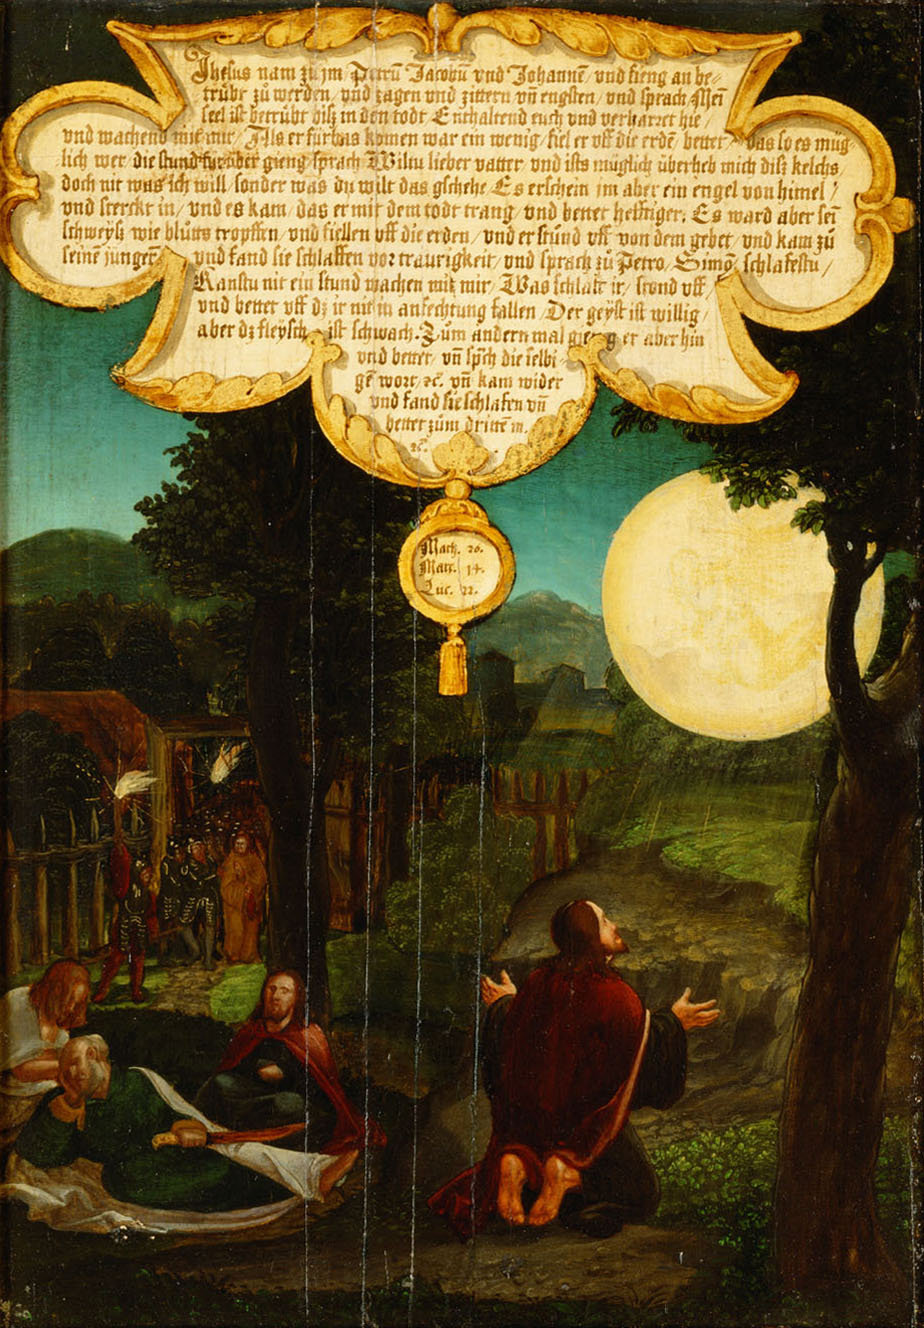 Jhesus nam zů jm/ Petrū Jacobū vnd Johannē/ vnd fieng an be-
trůbt zů werden/ vnd zagen vnd zittern vñ engsten/ vnd sprach/ Mei͂
seel ist betrůbt bisz in den todt Enthaltend euch vnd verharret hie/
vnd wachend mit mir/ Als er fürbas komen war ein wenig/ fiel er vff die erdē/ bettet/ das so es müg
lich wer/ die stund fürüber gieng/ sprach/ Wiltu lieber vatter/ vnd ists müglich überheb mich disz kelchs/
doch nit was ich will/ sonder was du wilt das gschehe/ Es erschein jm aber ein engel von himel/
vnd sterckt in/ vnd es kam/ das er mit dem todt trang/ vnd bettet hefftiger. Es ward aber sei͂
schweysz wie blůtts tropffen/ vnd fiellen vff die erden/ vnd er stůnd vff von dem gebet/ vnd kam zů
seinē jungern/ vnd fand sie schlaffen vor traurigkeit/ vnd sprach zů Petro/ Simō schlafestu/
Kanstu nit ein stund wachen mit mir/ Was schlaft ir/ stond vff/
vnd bettet vff dz ir nit in anfechtung fallen/ Der geyst ist willig/
aber dz fleysch/ ist schwach. Zům andern mal gieng er aber hin
vnd bettet/ vñ sp̄ch die selbi
gē wort/ ꝛc. vñ kam wider
vnd fand sie schlafen vñ
bettet zům drittē m.
ꝛc.
Math. 26.
Marc. 14.
Luc. 22.